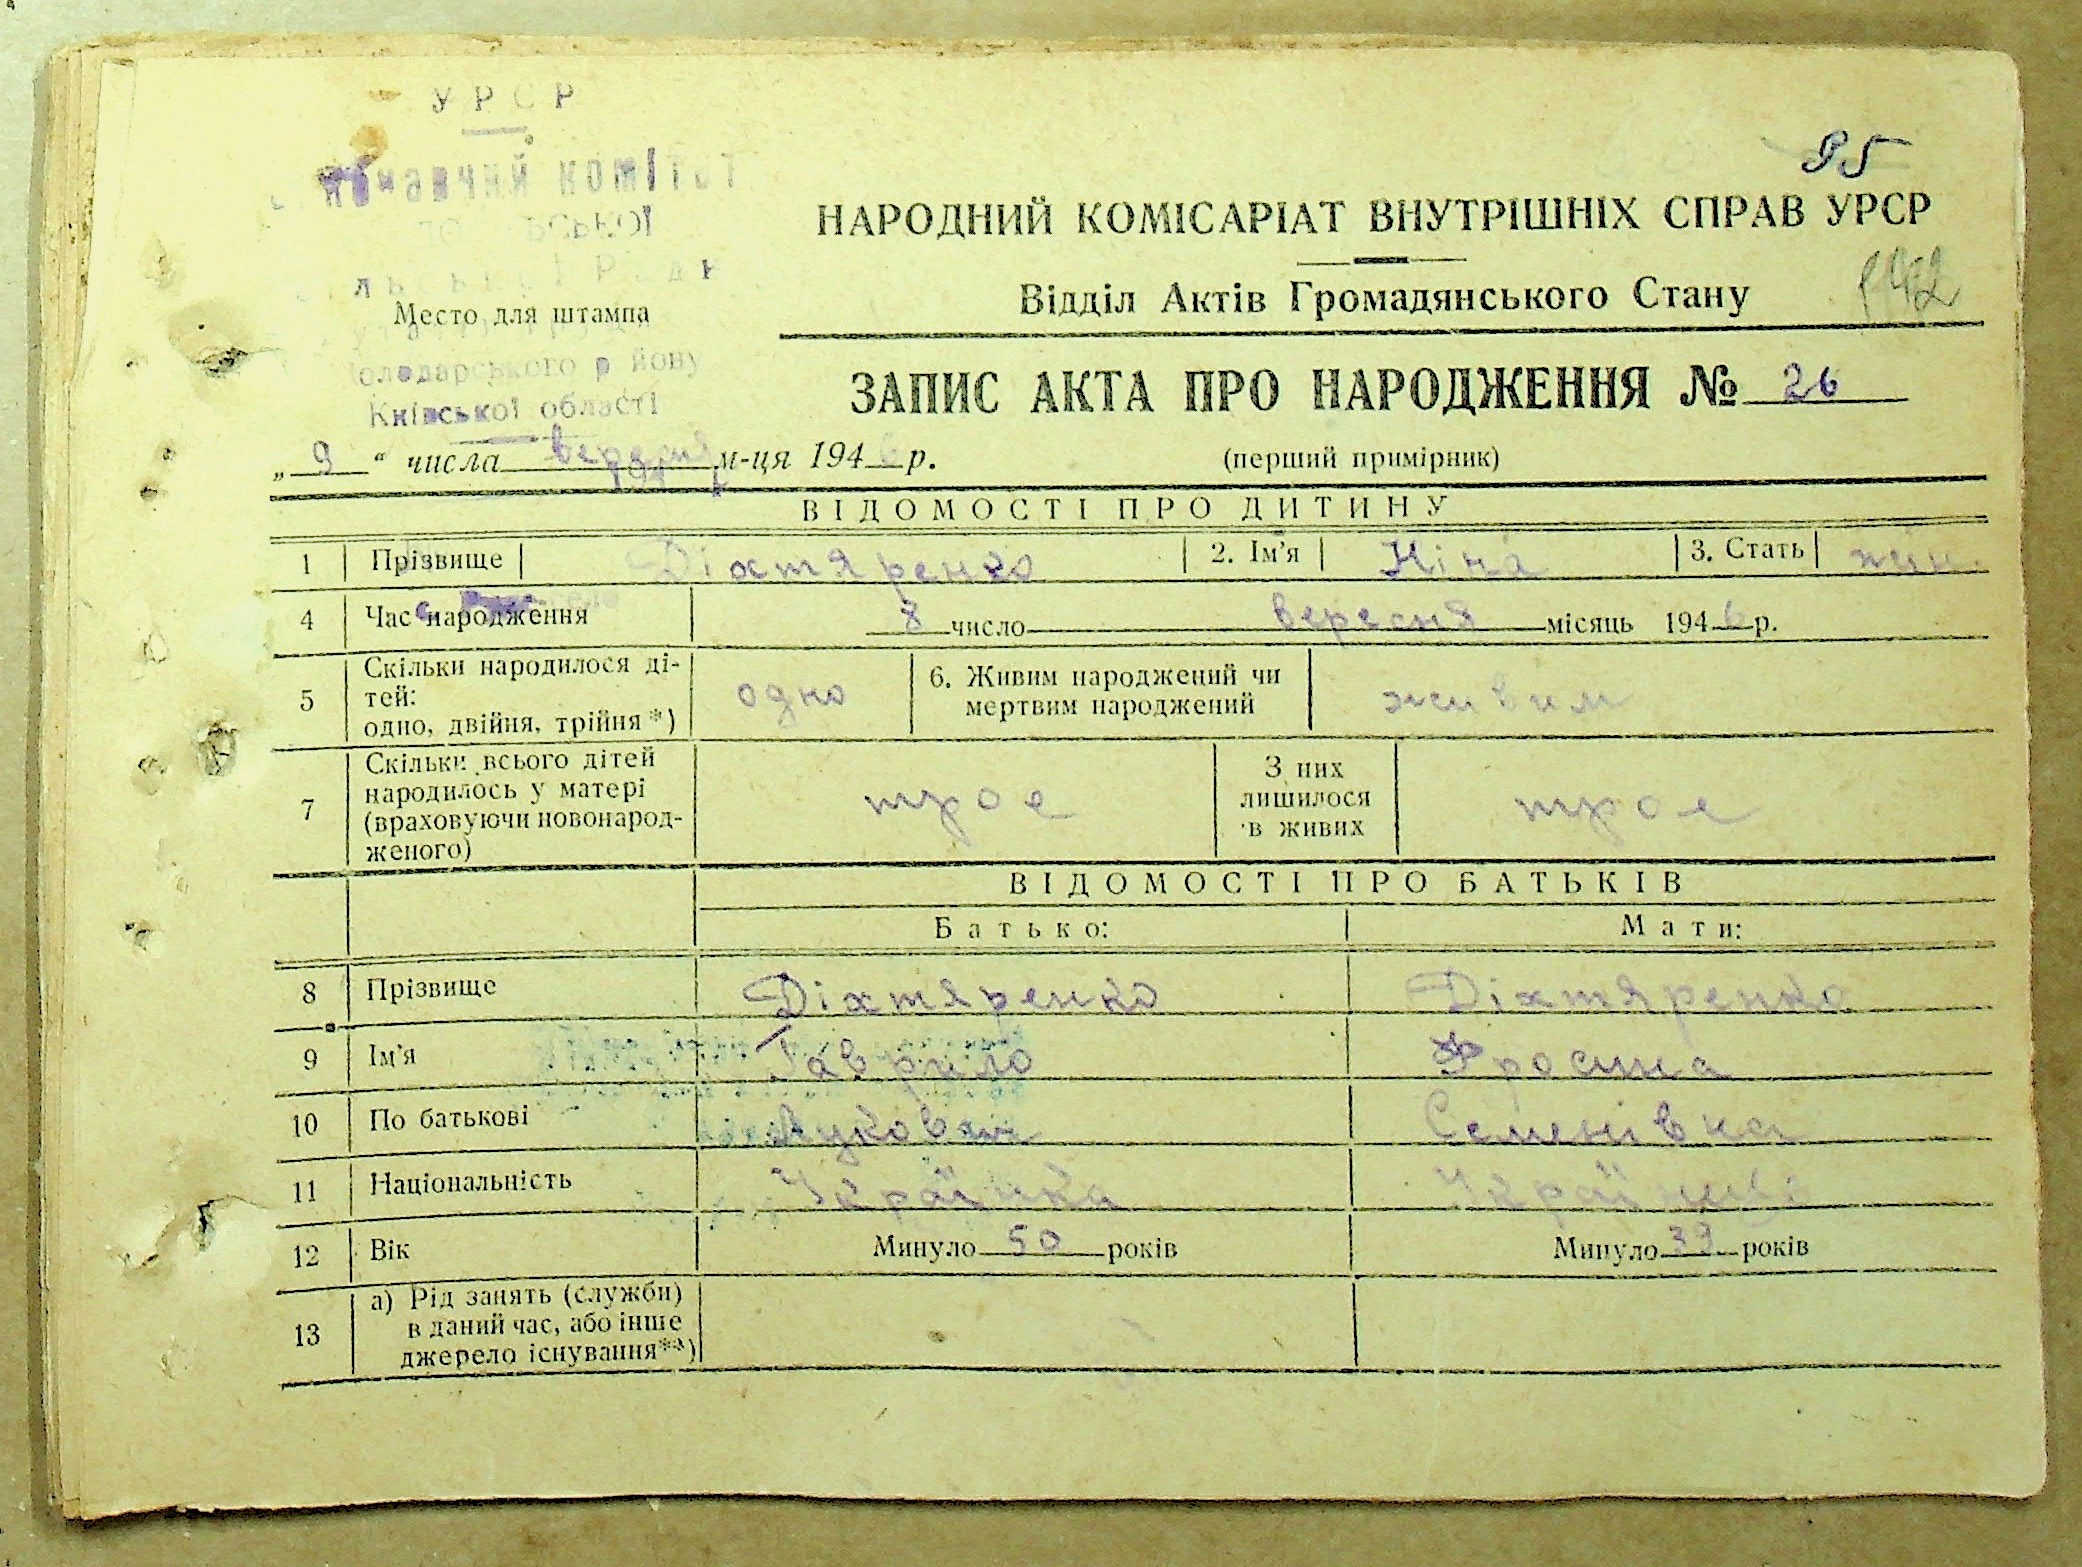 УРСР
комітет
ської
Место для штампа
Володарського району
Київської області
85
НАРОДНИЙ КОМІСАРІАТ ВНУТРІШНІХ СПРАВ УРСР
Відділ Актів Громадянського Стану
ЗАПИС АКТА ПРО НАРОДЖЕННЯ № 26
„ 9 “ числа вересня м-ця 1946 р. (перший примірник)
ВІДОМОСТІ ПРО ДИТИНУ
1 Прізвище Діхтяренко 2. Ім'я Ніна 3. Стать жін.
4 Час народження 8 число вересня місяць 1946 р.
5 Скільки народилося ді-
тей:
одно, двійня, трійня*) одно 6. Живим народжений чи
мертвим народжений живим
7 Скільки всього дітей
народилось у матері
(враховуючи новонарод-
женого) троє З них
лишилося
в живих троє
ВІДОМОСТІ ПРО БАТЬКІВ
Батько: Мати:
8 Прізвище Діхтяренко Діхтяренко
9 Ім'я Гаврило Фросина
10 По батькові Лукович Семенівна
11 Національність Українка
12 Вік Минуло 50 років Минуло 39 років
13 а) Рід занять (служби)
в даний час, або інше
джерело існування**)